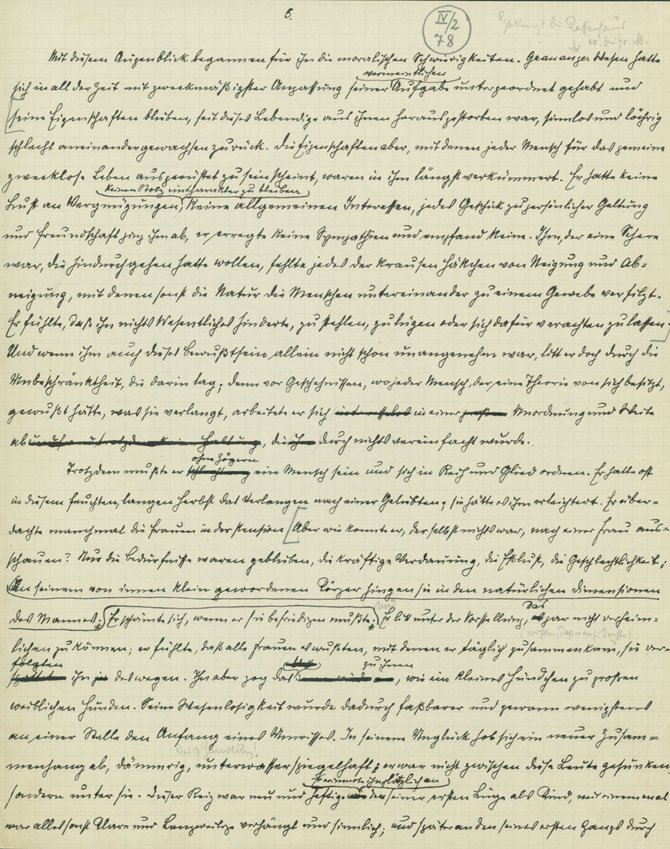 5.
IV/2
78
Mit diesem Augenblick begannen für ihn die moralischen Schwierigkeiten. Sein ganzes Wesen hatte
vermeintlichen
sich in all der Zeit mit zweckmäßigster Anpassung seiner Aufgabe untergeordnet gehabt und
seine Eigenschaften blieben, seit dieses Lebendige aus ihnen herausgestorben war, sinnlos und löchrig
schlecht aneinandergewachsen zurück. Die Eigenschaften aber, mit denen jeder Mensch für das gemeine
zwecklose Leben ausgerüstet zu sein scheint, waren in ihm längst verkümmert. Er hatte keine
keinen Stolz ein Charakter zu bleiben
Lust an Vergnügungen, keine allgemeinen Interessen, jedes Geschick zu persönlicher Geltung
und Freundschaft ging ihm ab, er erregte keine Sympathien und empfand keine. Ihm, der eine Schere
war, die hindurchgehen hatte wollen, fehlte jedes der krausen Häkchen von Neigung und Ab-
neigung, mit denen sonst die Natur die Menschen untereinander zu einem Gewebe verfilzt.
Er fühlte, daß ihn nichts Wesentliches hinderte, zu stehlen, zu lügen oder sich dafür verachten zu lassen.
Und wenn ihm auch dieses Bewußtsein allein nicht schon unangenehm war, litt er doch durch die
Unbeschränktheit, die darin lag; denn vor Geschehnissen, wo jeder Mensch, der eine Theorie von sich besitzt,
gewußt hätte, was sie verlangt, arbeitete er sich in einer Unordnung und Weite
ab, die durch nichts vereinfacht wurde.
ohne Zögern
Trotzdem mußte er ein Mensch sein und sich in Reih und Glied ordnen. Er hatte oft
in diesem feuchten, langen Herbst das Verlangen nach einer Geliebten; sie hätte es ihm erleichtert. Er über-
dachte manchmal die Frauen in der Pension. Aber wie konnte er, der selbst nichts war, nach einer Frau aus-
schauen? Nur die Bedürfnisse waren geblieben, die kräftige Verdauung, die Eßlust, die Geschlechtlichkeit;
An seinem von innen klein gewordenen Körper hingen sie in den natürlichen Dimensionen
des Mannes; Er schämte sich, wenn er sie befriedigen mußte. Er litt unter der Vorstellung, das gar nicht verheim-
lichen zu können; er fühlte, daß alle Frauen es wußten, mit denen er täglich zusammenkam, sie ver-
folgten ihn deswegen. Ihn aber zog das zu ihnen, wie ein kleines Hündchen zu großen
weiblichen Hunden. Seine Wesenlosigkeit wurde dadurch faßbarer und gewann wenigstens
an einer Stelle den Anfang eines Umrisses. In seinem Unglück hob sich ein neuer Zusam-
menhang ab, dämmrig, unterwasserspiegelhaft; er war nicht zwischen diese Leute gesunken
Er erinnerte ihn plötzlich an
sondern unter sie. Dieser Reiz war neu und heftig. seiner ersten Lüge als Kind, mit einem mal
war alles sonst Klare und Langweilige verhängt und sinnlich; und später an den seines ersten Gangs durch